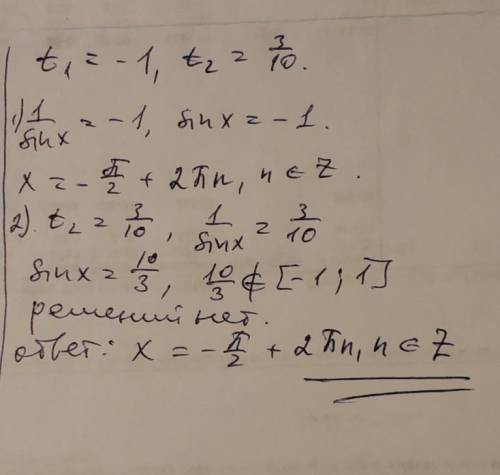 t₁ = -1, t₂ = 3/10.
1) 1/sinx = -1, sinx = -1.
x = -π/2 + 2πn, n ∈ Z.
2). t₂ = 3/10, 1/sinx = 3/10
sinx = 10/3, 10/3 ∉ [-1; 1]
решений нет.
ответ: x = -π/2 + 2πn, n ∈ Z